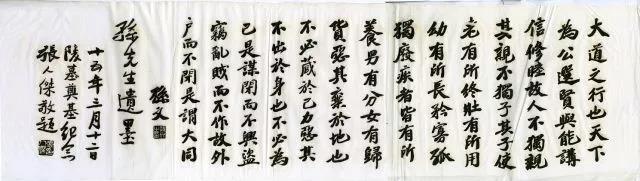 大道之行也天下
為公選賢與能講
信修睦故人不獨親
其親不獨子其子使
老有所終壯有所用
幼有所長矜寡孤
獨廢疾者皆有所
養男有分女有歸
貨惡其棄於地也
不必藏於己力惡其
不出於身也不必為
己是謀閉而不興盜
竊亂賊而不作故外
戶而不閉是謂大同
孫文
孫先生遺墨
十五年三月十二日
陵墓奠基紀念
張人傑敬題